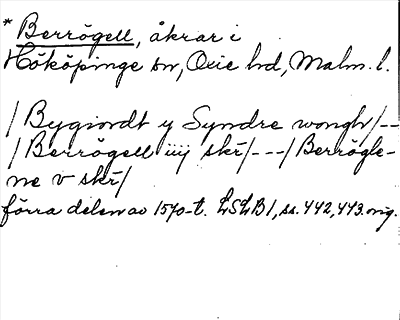 * Berrögell, åkrar i
Hököpinge sn, Oxie hd, Malm. l.
/Bygiordt y Syndre wongh/--
/Berrögell iiij skr/---/Berrögle-
ne v skr/
förra delen av 1570-t. LSLB1, ss. 442, 443. orig.